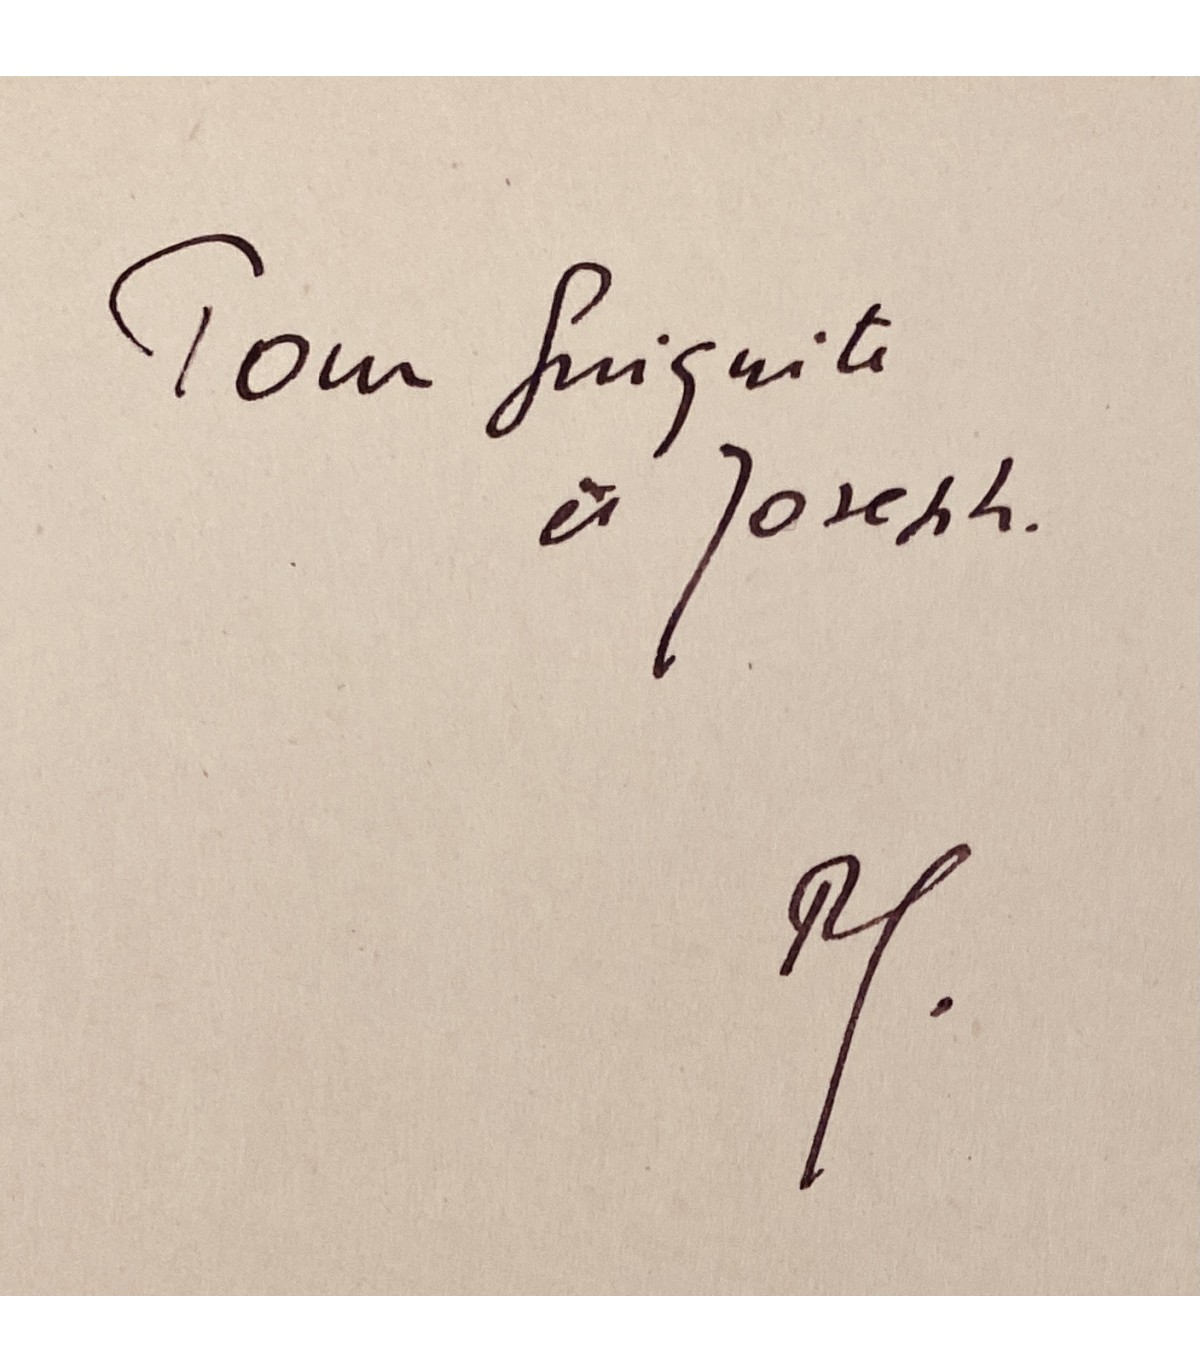 Pour Guiguite
et Joseph.